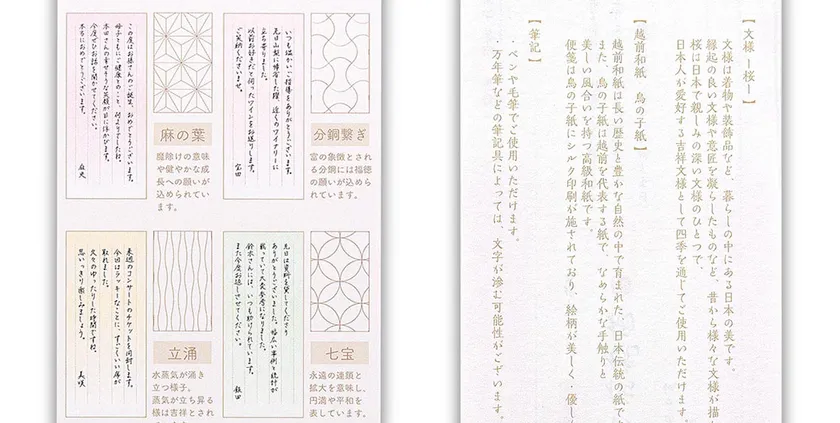 この度はお孫さんのご誕生、おめでとうございます。
母子ともにご健康とのこと、何よりでしたね。
本田さんの幸せそうな笑顔が目に浮かびます。
今度ぜひお話を聞かせてください。
本当におめでとうございます。
麻の葉
魔除けの意味
や健やかな成
長への願いが
込められてい
ます。
いつも温かいご指導をありがとうございます。
先日山梨に帰省した際、近くのワイナリーに
立ち寄りました。
以前お好きだと伺ったワインをお送りします。
ご笑納くださいませ。
富田
分銅繋ぎ
富の象徴とされ
る分銅には福徳
の願いが込めら
れています。
来週のコンサートのチケットを同封します。
今回はラッキーなことに、すごくいい席が
取れました。
久々のゆったりした時間ですね。
思いっきり楽しみましょう。
美咲
立涌
水蒸気が涌き
立つ様子。
蒸気が立ち昇る
様は吉祥とされ
先日は資料を貸してくださり
ありがとうございました。幅広い事例と統計が
載っていて大変参考になりました。
鈴木さんには、いつも助けられています。
また今度お話しさせてください。
飯田
七宝
永遠の連鎖と
拡大を意味し、
円満や平和を
表しています。
【文様 ー桜ー】
文様は着物や装飾品など、暮らしの中にある日本の美です。
縁起の良い文様や意匠を凝らしたものなど、昔から様々な文様が描
桜は日本で親しみの深い文様のひとつで
日本人が愛好する吉祥文様として四季を通じてご使用いただけます。
【越前和紙 鳥の子紙】
越前和紙は長い歴史と豊かな自然の中で育まれた、日本伝統の紙です
また、鳥の子紙は越前を代表する紙で、なめらかな手触りと
美しい風合いを持つ高級和紙です。
便箋は鳥の子紙にシルク印刷が施されており、絵柄が美しく・優し
【筆記】
・ペンや毛筆でご使用いただけます。
・万年筆などの筆記具によっては、文字が滲む可能性がございます。